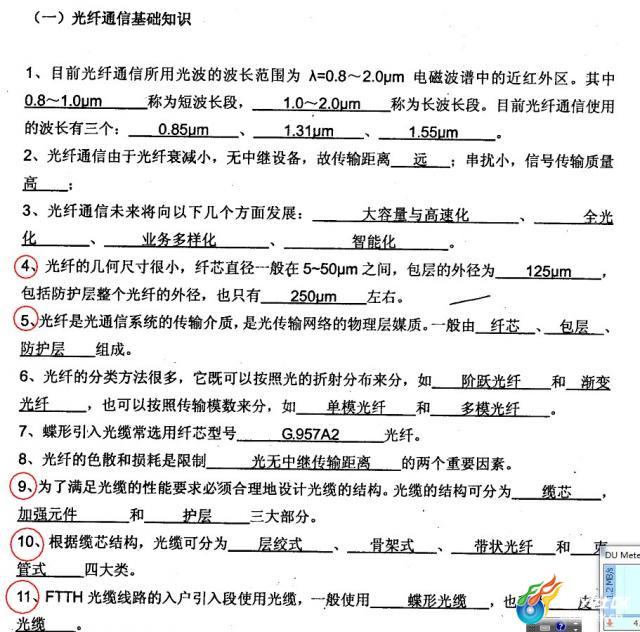 （一）光纤通信基础知识
1、目前光纤通信所用光波的波长范围为 λ=0.8～2.0μm 电磁波谱中的近红外区。其中
0.8～1.0μm 称为短波长段，1.0～2.0μm 称为长波长段。目前光纤通信使用
的波长有三个：0.85μm、1.31μm、1.55μm。
2、光纤通信由于光纤衰减小，无中继设备，故传输距离 远；串扰小，信号传输质量
高；
3、光纤通信未来将向以下几个方面发展：大容量与高速化、全光
化、业务多样化、智能化。
4、光纤的几何尺寸很小，纤芯直径一般在 5~50μm 之间，包层的外径为 125μm，
包括防护层整个光纤的外径，也只有 250μm 左右。
5、光纤是光通信系统的传输介质，是光传输网络的物理层媒质。一般由 纤芯、包层、
防护层 组成。
6、光纤的分类方法很多，它既可以按照光的折射分布来分，如 阶跃光纤 和 渐变
光纤，也可以按照传输模数来分，如 单模光纤 和 多模光纤。
7、蝶形引入光缆常选用纤芯型号 G.957A2 光纤。
8、光纤的色散和损耗是限制 光无中继传输距离 的两个重要因素。
9、为了满足光缆的性能要求必须合理地设计光缆的结构。光缆的结构可分为 缆芯，
加强元件 和 护层 三大部分。
10、根据缆芯结构，光缆可分为 层绞式、骨架式、带状光纤 和
管式 四大类。
11、FTTH 光缆线路的入户引入段使用光缆，一般使用 蝶形光缆，也
光缆。
DU Mete